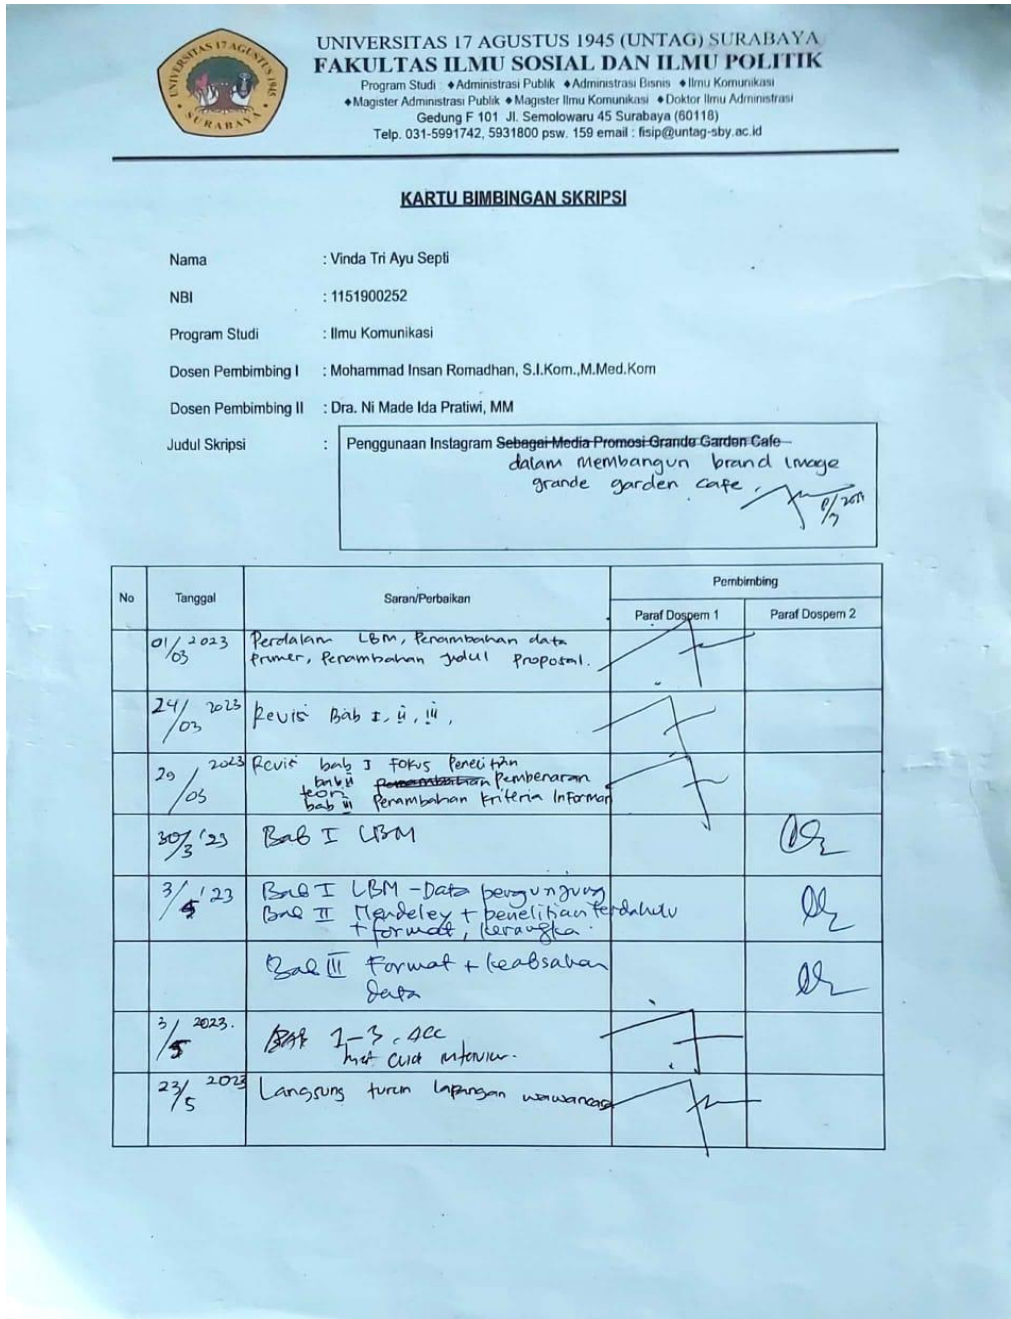 UNIVERSITAS 17 AGUSTUS 1945
SURABAYA
UNIVERSITAS 17 AGUSTUS 1945 (UNTAG) SURABAYA
FAKULTAS ILMU SOSIAL DAN ILMU POLITIK
Program Studi : ◆Administrasi Publik ◆Administrasi Bisnis ◆Ilmu Komunikasi
◆Magister Administrasi Publik ◆Magister Ilmu Komunikasi ◆Doktor Ilmu Administrasi
Gedung F 101 Jl. Semolowaru 45 Surabaya (60118)
Telp. 031-5991742, 5931800 psw. 159 email : fisip@untag-sby.ac.id
KARTU BIMBINGAN SKRIPSI
Nama : Vinda Tri Ayu Septi
NBI : 1151900252
Program Studi : Ilmu Komunikasi
Dosen Pembimbing I : Mohammad Insan Romadhan, S.I.Kom.,M.Med.Kom
Dosen Pembimbing II : Dra. Ni Made Ida Pratiwi, MM
Judul Skripsi : Penggunaan Instagram Sebagai Media Promosi Grande Garden Cafe
dalam membangun brand image
grande garden cafe.
No Tanggal Saran/Perbaikan Pembimbing
Paraf Dospem 1 Paraf Dospem 2
01/03 2023 Perdalam LBM, Penambahan data
Primer, Penambahan Judul Proposal.
24/03 2023 Revisi Bab I, II, III,
29/03 2023 Revisi bab I Fokus Penelitian
bab II Pembenaran
teori
bab III Penambahan Kriteria Informan
30/3 '23 Bab I LBM
3/5 '23 Bab I LBM - Data pengunjung
Bab II Mendeley + penelitian terdahulu
+ format, kerangka.
Bab III Format + keabsahan
data
3/5 2023. BAB 1-3. ACC
23/5 2023 Langsung turun lapangan wawancara